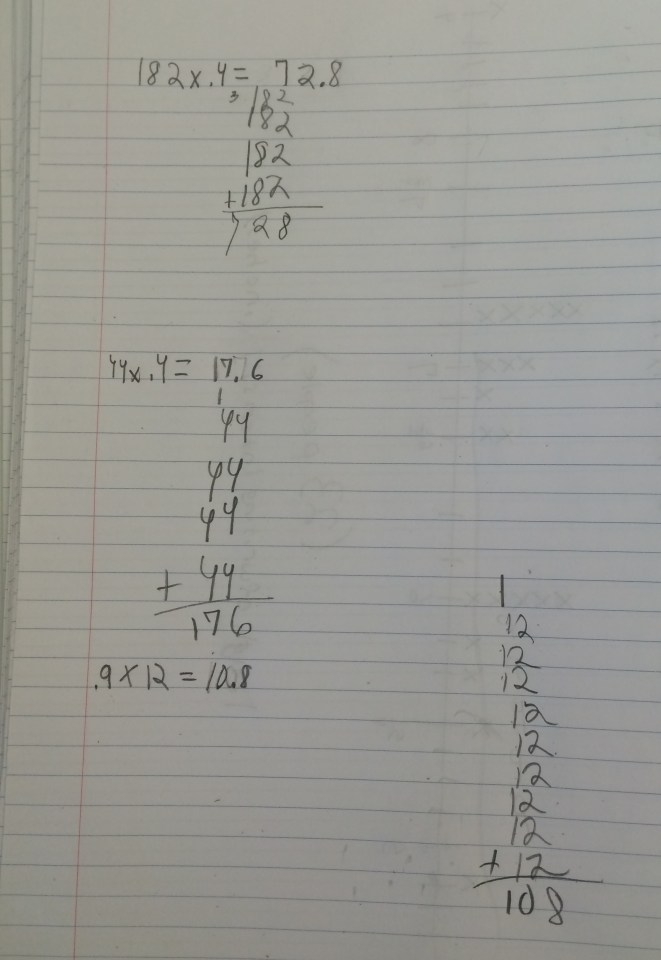 182x.4= 72.8
3
182
182
182
+182
728
44x.4= 17.6
1
44
44
44
+ 44
176
.9x12=10.8
1
12
12
12
12
12
12
12
12
+12
108